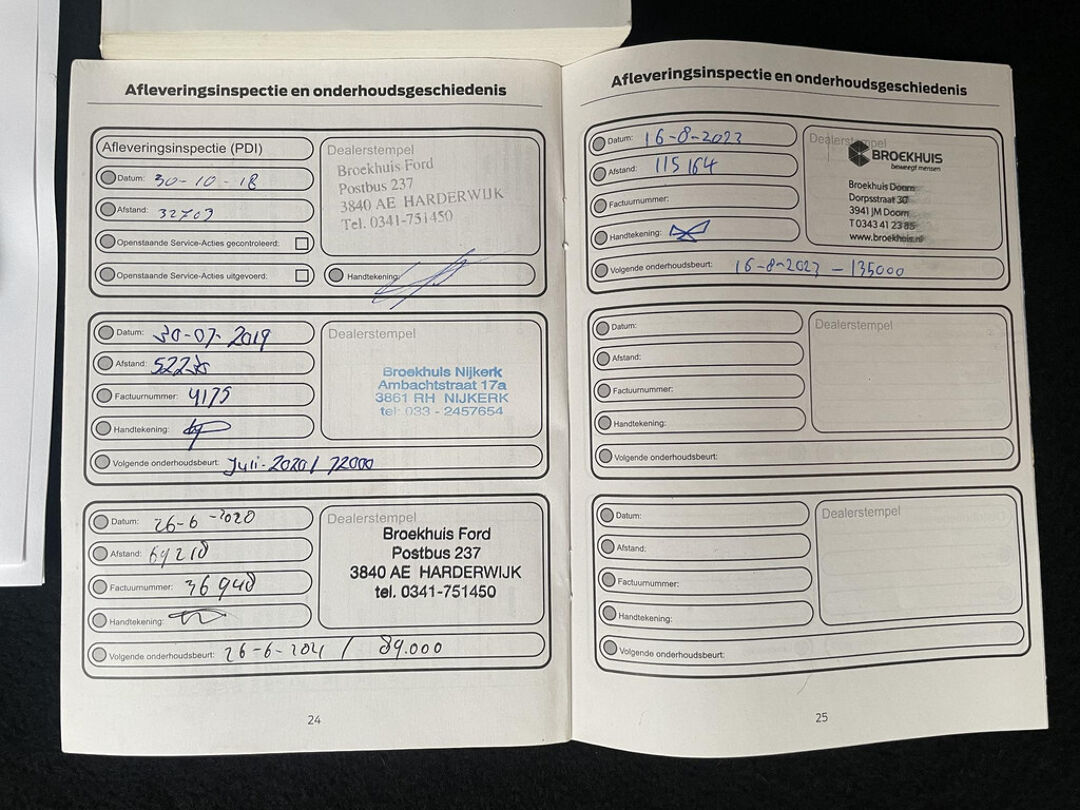 Afleveringsinspectie en onderhoudsgeschiedenis
Afleveringsinspectie (PDI)
Datum: 30-10-18
Afstand: 32703
Openstaande Service-Acties gecontroleerd:
Openstaande Service-Acties uitgevoerd:
Dealerstempel
Broekhuis Ford
Postbus 237
3840 AE HARDERWIJK
Tel. 0341-751450
Handtekening:
Datum: 30-07-2019
Afstand:
Factuurnummer: 4175
Handtekening:
Dealerstempel
Broekhuis Nijkerk
Ambachtstraat 17a
3861 RH NIJKERK
tel: 033 - 2457654
Volgende onderhoudsbeurt: Juli-2020 / 72000
Datum: 26-6-2020
Afstand: 69210
Factuurnummer: 36940
Handtekening:
Dealerstempel
Broekhuis Ford
Postbus 237
3840 AE HARDERWIJK
tel. 0341-751450
Volgende onderhoudsbeurt: 26-6-2021 / 89.000
24
Afleveringsinspectie en onderhoudsgeschiedenis
Datum: 16-8-2023
Afstand: 115164
Factuurnummer:
Handtekening:
Dealerstempel
BROEKHUIS
beweegt mensen
Broekhuis Doorn
Dorpsstraat 30
3941 JM Doorn
T 0343 41 23 85
www.broekhuis.nl
Volgende onderhoudsbeurt: 16-8-2023 - 135000
Datum:
Afstand:
Factuurnummer:
Handtekening:
Dealerstempel
Volgende onderhoudsbeurt:
Datum:
Afstand:
Factuurnummer:
Handtekening:
Dealerstempel
Volgende onderhoudsbeurt:
25